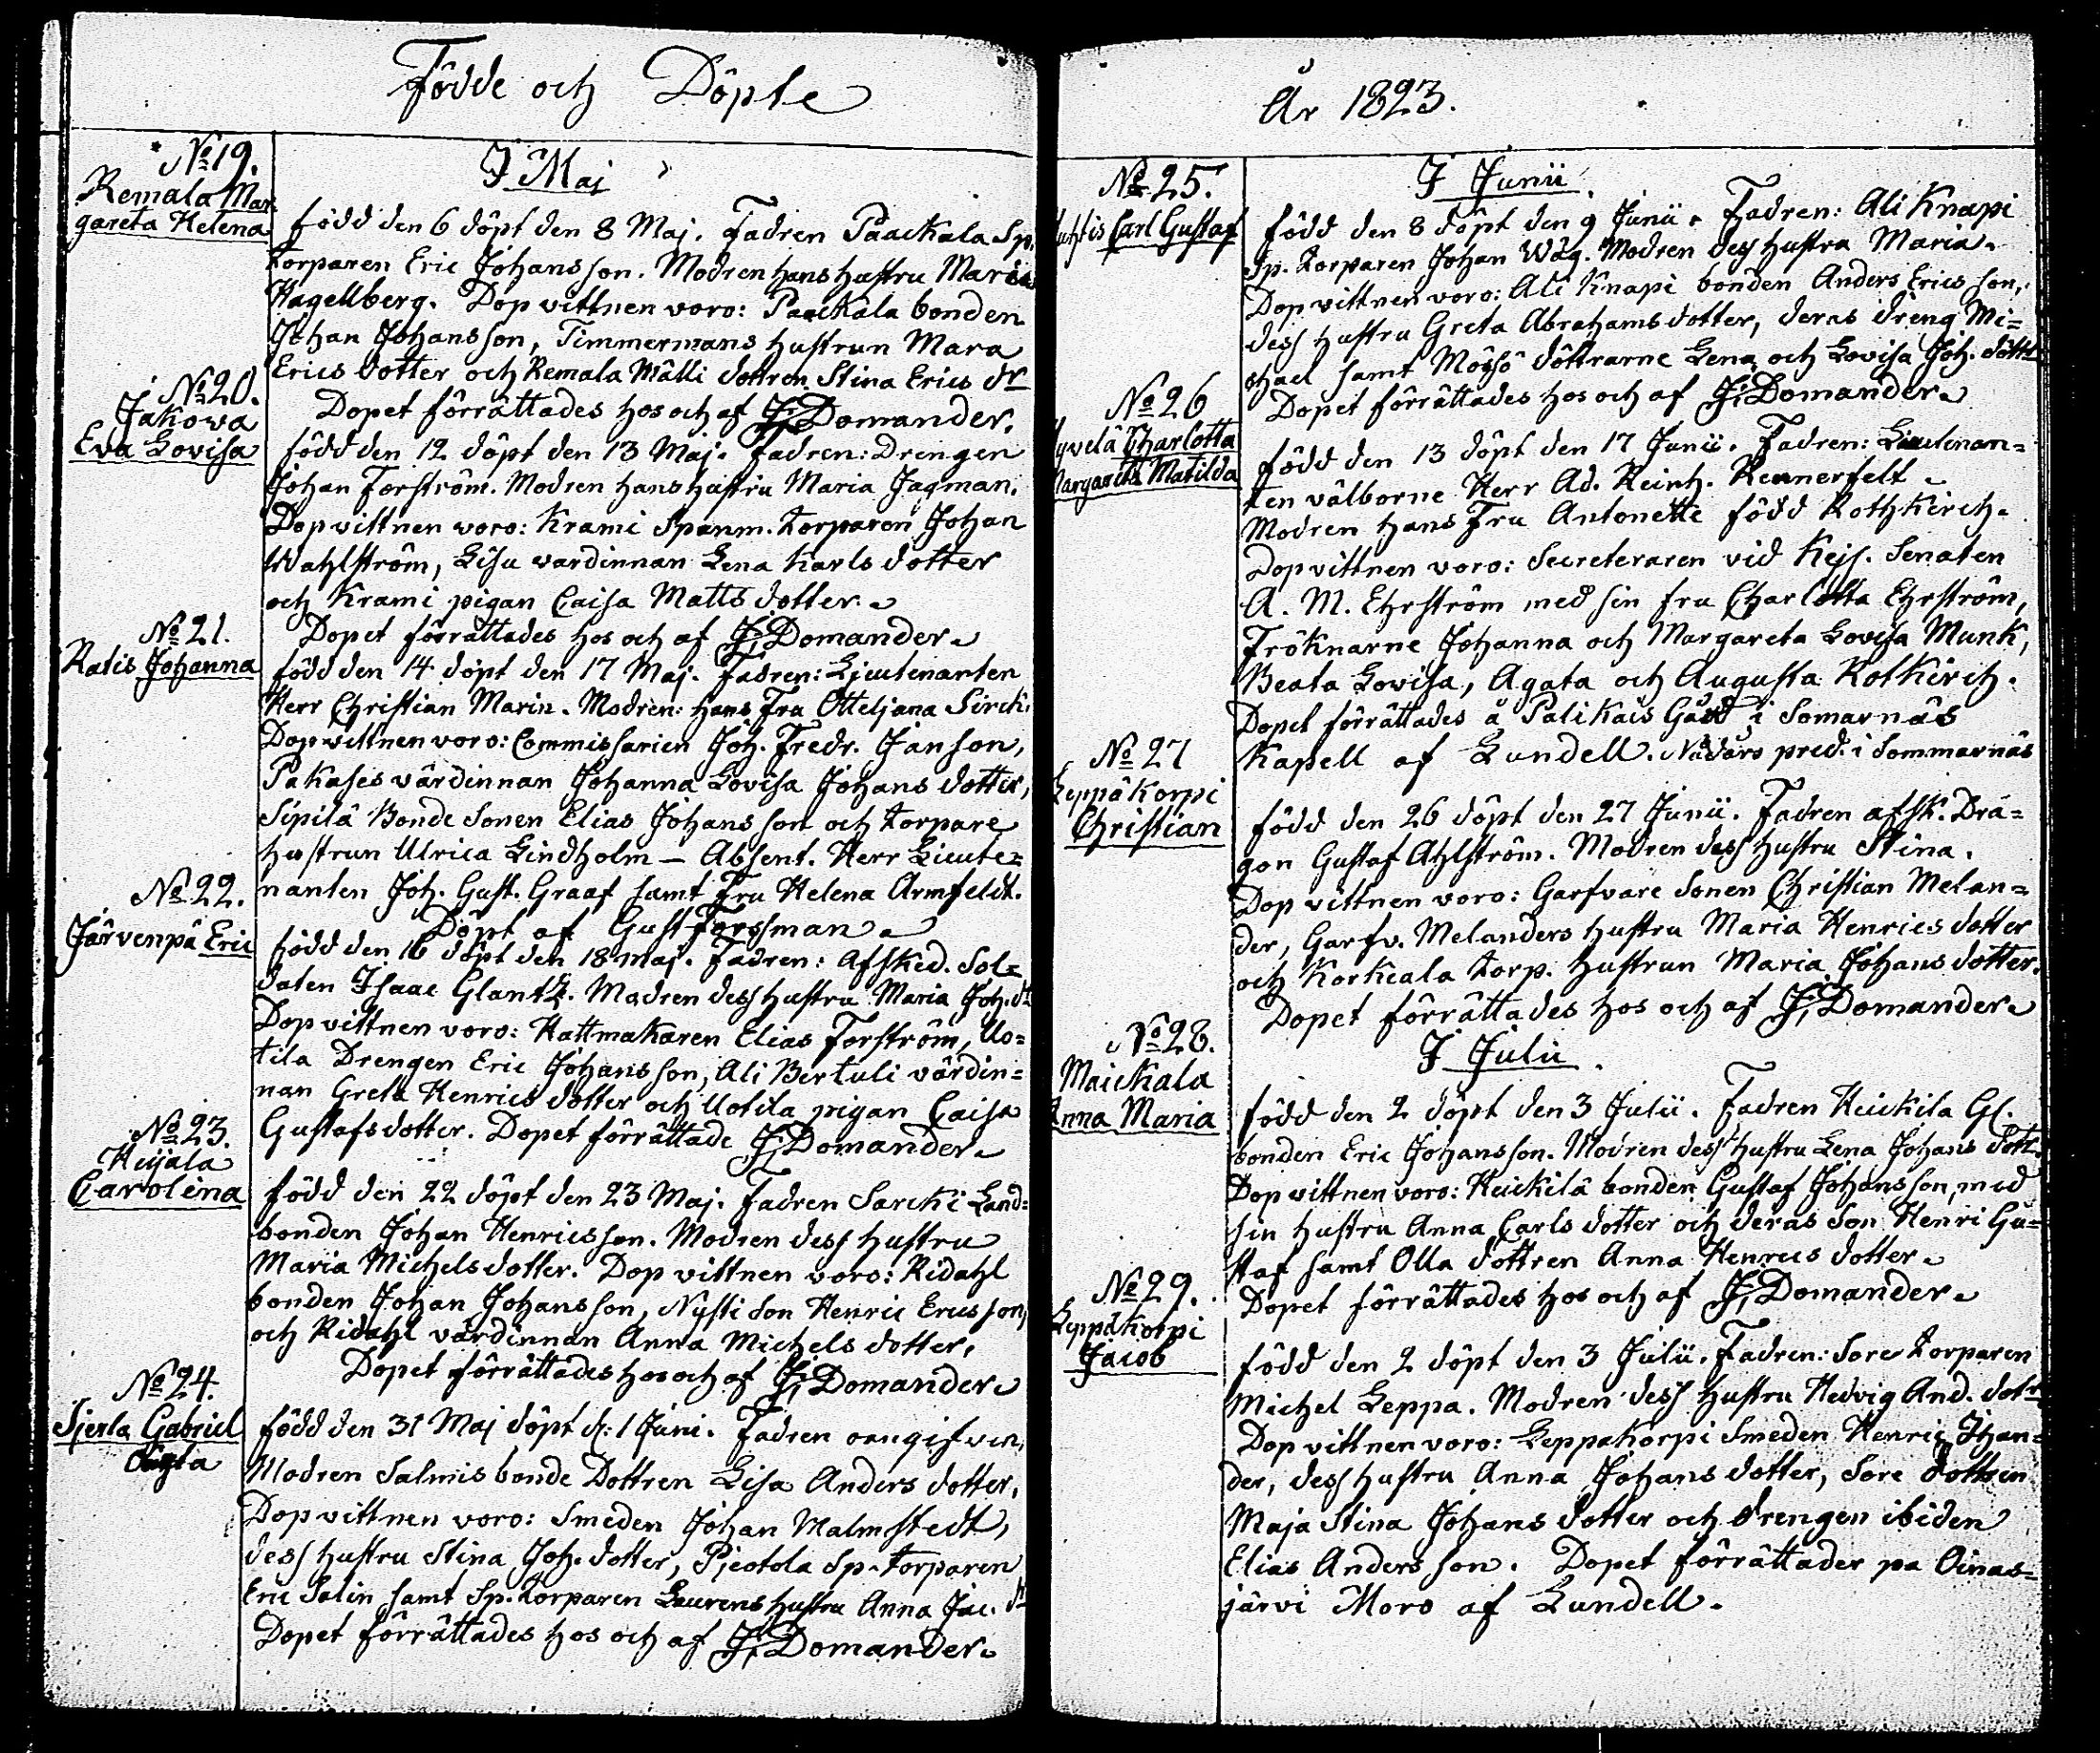 Födde och Döpte
No 19.
Remala Mar-
gareta Helena
I Maj
född den 6 döpt den 8 Maj. Fadren Paackala Sp.
torparen Eric Johansson. Modren hans hustru Maria
Hagellberg. Dop vittnen voro: Paackala bonden
Johan Johansson, Timmermans hustrun Mara
Erics dotter och Remala Mälli dottren Stina Erics dr
Dopet förrättades hos och af J. Domander.
No 20.
Jakowa
Eva Lovisa
född den 12 döpt den 13 Maj. Fadren: Drengen
Johan Forström. Modren hans hustru Maria Jagman.
Dop vittnen voro: Krami Spanm. torparen Johan
Wahlström, Lisu vardinnan Lena Karls dotter
och Krami pigan Caisa Matts dotter.
Dopet förrättades hos och af J. Domander.
No 21.
Ratis Johanna
född den 14 döpt den 17 Maj. Fadren: Ljeutenanten
Herr Christian Marin. Modren: hans Fru Otteljana Sirck.
Dop vittnen voro: Commissarien Joh. Fredr. Janson,
Pakases värdinnan Johanna Lovisa Johans dotter,
Sipilä Bonde Sonen Elias Johansson och torpare
hustrun Ulrica Lindholm — Absent. Herr Lieute=
nanten Joh. Gust. Graaf samt Fru Helena Armfeldt.
Döpt af Gust Forssman
No 22.
Järvenpä Eric
född den 16 döpt den 18 maj. Fadren: Afsked. Sol=
daten Isaac Glantz. Modren dess hustru Maria Joh. dr
Dop vittnen voro: Hattmakaren Elias Forström, Uo=
tila Drengen Eric Johansson, Ali Bertuli värdin=
nan Greta Henrics dotter och Uotila pigan Caisa
Gustafs dotter. Dopet förrättade J. Domander.
No 23.
Heijala
Carolina
född den 22 döpt den 23 Maj. Fadren Sarcki Land=
bonden Johan Henricsson. Modren dess hustru
Maria Michels dotter. Dop vittnen voro: Ridahl
bonden Johan Johansson, Nysti Son Henric Ericsson,
och Ridahl värdinnan Anna Michels dotter,
Dopet förrättades hos och af J. Domander
No 24.
Sjerla Gabriel
född den 31 Maj döpt d: 1 Juni. Fadren oangifven,
Modren Salmis bonde Dottren Lisa Anders dotter.
Dop vittnen voro: Smeden Johan Malmstedt,
dess hustru Stina Joh. dotter, Pjeotola Sp. torparen
Eric Salin samt Sp. torparen Laurens hustru Anna Jac. dr
Dopet förrättades hos och af J. Domander.
År 1823.
No 25.
Carl Gustaf
I Junii
född den 8 döpt den 9 Junii. Fadren: Ali Knapi
Sp. torparen Johan Wäg. Modren dess hustru Maria.
Dop vittnen voro: Ali Knapi bonden Anders Ericsson,
dess hustru Greta Abrahams dotter, deras dreng Mi=
chael samt Mössö döttrarne Lena och Lovisa Joh. döttr
Dopet förrättades hos och af J. Domander.
No 26
Hyvelä Charlotta
Margareta Matilda
född den 13 döpt den 17 Junii. Fadren: Lieutenan=
ten välborne Herr Ad. Reinh. Rennerfelt.
Modren hans Fru Antonette född Rothkirch.
Dop vittnen voro: Secreteraren vid Kejs. Senaten
A. M. Ehrström med sin fru Charlotta Ehrström,
Fröknarne Johanna och Margareta Lovisa Munk,
Beata Lovisa, Agata och Augusta Rotkirch.
Dopet förrättades å Palikais Gård i Somarnäs
Kapell af Lundell. Nådårs pred. i Sommarnäs
No 27
Leppäkorpi
Christian
född den 26 döpt den 27 Junii. Fadren afsk. Dra=
gon Gustaf Ahlström. Modren dess hustru Stina.
Dop vittnen voro: Garfvare Sonen Christian Melan=
der, Garfv. Melanders hustru Maria Henrics dotter
och Korkeala torp. hustrun Maria Johans dotter.
Dopet förrättades hos och af J. Domander.
No 28.
Maickala
Anna Maria
I Julii
född den 2 döpt den 3 Julii. Fadren Heickila Gl.
bonden Eric Johansson. Modren dess hustru Lena Johans dottr.
Dop vittnen voro: Heickilä bonden Gustaf Johansson, med
sin hustru Anna Carls dotter och deras son Henri Gu=
staf samt Olla dottren Anna Henrics dotter.
Dopet förrättades hos och af J. Domander.
No 29.
Leppäkorpi
Jacob
född den 2 döpt den 3 Julii. Fadren: Sore torparen
Michel Leppa. Modren dess hustru Hedvig And. dotr
Dop vittnen voro: Leppakorpi Smeden Henric Ithan=
der, dess hustru Anna Johans dotter, Sore dottren
Maja Stina Johans dotter och drengen ibiden
Elias Andersson. Dopet förrättader pa Oinas=
järvi Moro af Lundell.